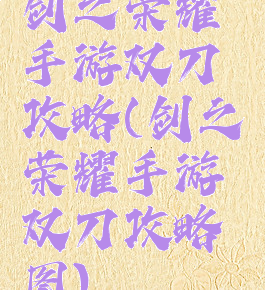 剑之荣耀
手游双刀
攻略(剑之
荣耀手游
双刀攻略
图)